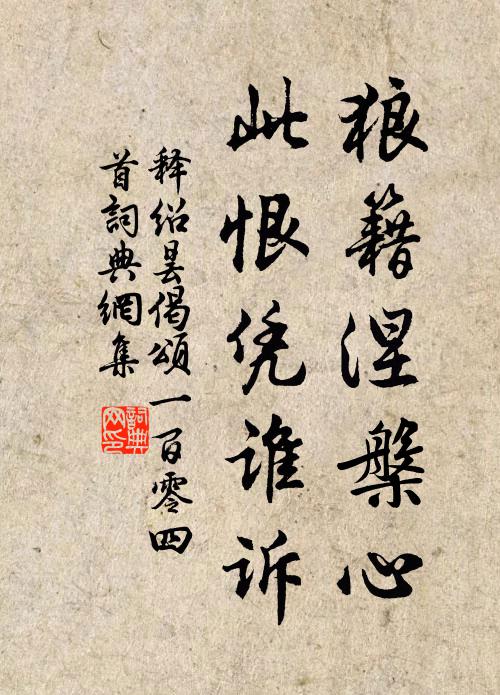 狼籍涅槃心
此恨凭谁诉
释绍昙偈頌一百零四
首詞典網集
詞典
网印